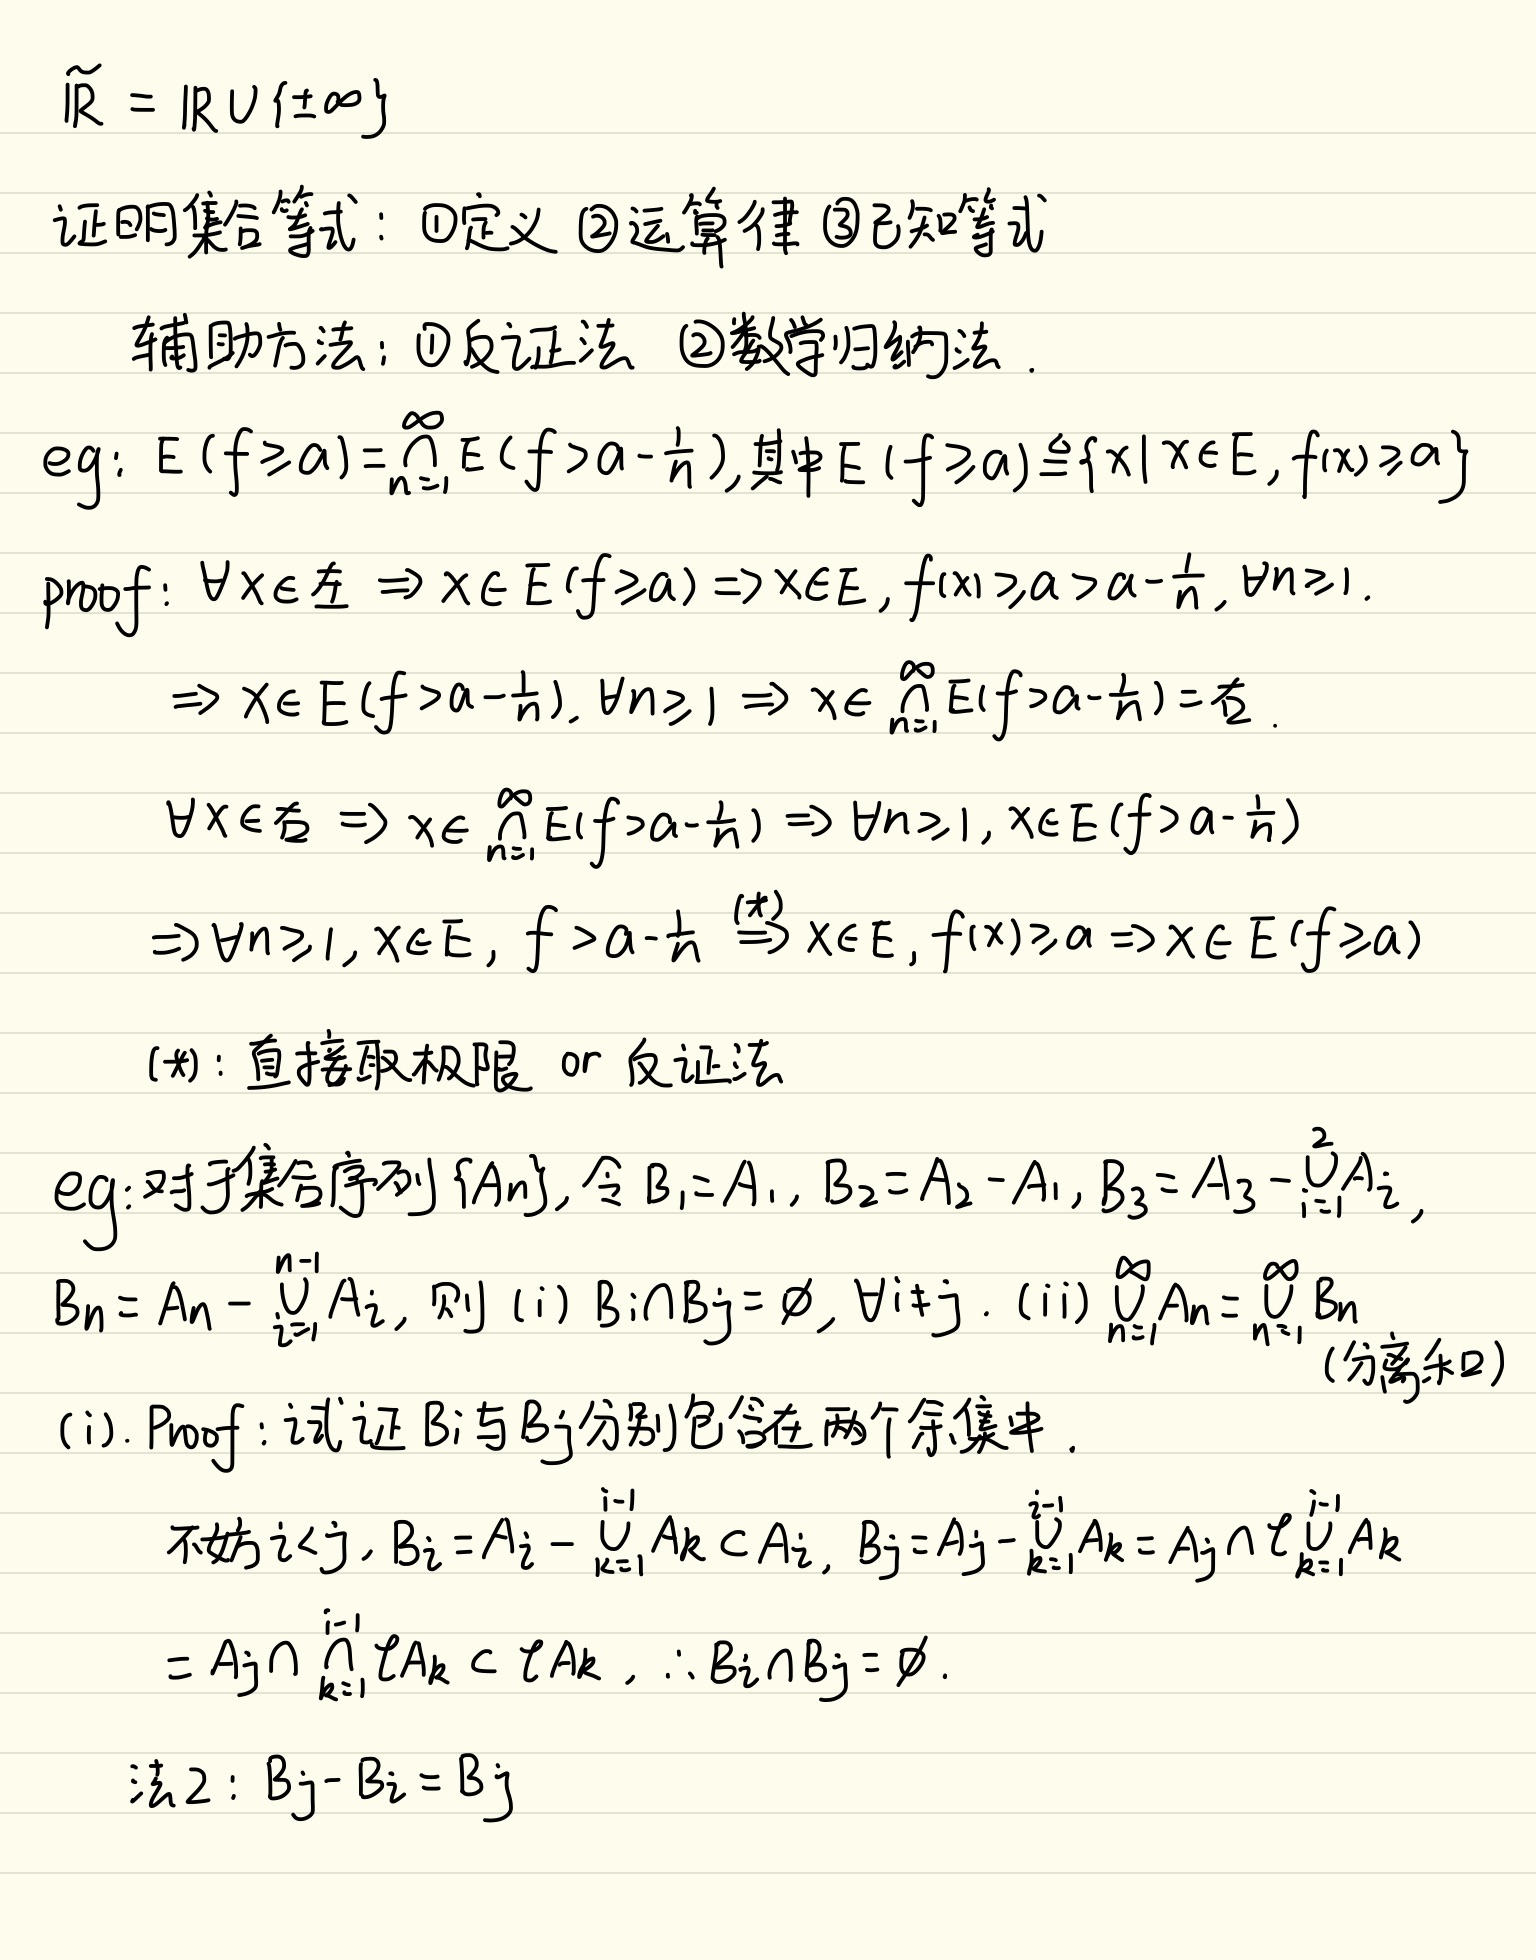 ℝ̃ = ℝ∪{±∞}
证明集合等式: ①定义 ②运算律 ③已知等式
辅助方法: ①反证法 ②数学归纳法.
eg: E(f≥a)=⋂_{n=1}^{∞} E(f>a-1/n),其中E(f≥a)≜{x|x∈E,f(x)≥a}
proof: ∀x∈左 ⇒ x∈E(f≥a) ⇒ x∈E, f(x)≥a>a-1/n, ∀n≥1.
⇒ x∈E(f>a-1/n), ∀n≥1 ⇒ x∈ ⋂_{n=1}^{∞} E(f>a-1/n)=右.
∀x∈右 ⇒ x∈ ⋂_{n=1}^{∞} E(f>a-1/n) ⇒ ∀n≥1, x∈E(f>a-1/n)
⇒ ∀n≥1, x∈E, f>a-1/n ⇒^{(*)} x∈E, f(x)≥a ⇒ x∈E(f≥a)
(*): 直接取极限 or 反证法
eg:对于集合序列{An},令B₁=A₁, B₂=A₂-A₁, B₃=A₃-⋃_{i=1}^{2}A_i,
B_n=A_n-⋃_{i=1}^{n-1}A_i, 则(i) B_i∩B_j=∅, ∀i≠j. (ii) ⋃_{n=1}^{∞}A_n=⋃_{n=1}^{∞}B_n
(分离和)
(i). Proof: 试证B_i与B_j分别包含在两个余集中.
不妨i<j, B_i=A_i-⋃_{k=1}^{i-1}A_k⊂A_i, B_j=A_j-⋃_{k=1}^{j-1}A_k=A_j∩∁⋃_{k=1}^{j-1}A_k
=A_j∩⋂_{k=1}^{j-1}∁A_k⊂∁A_k, ∴B_i∩B_j=∅.
法2: B_j-B_i=B_j